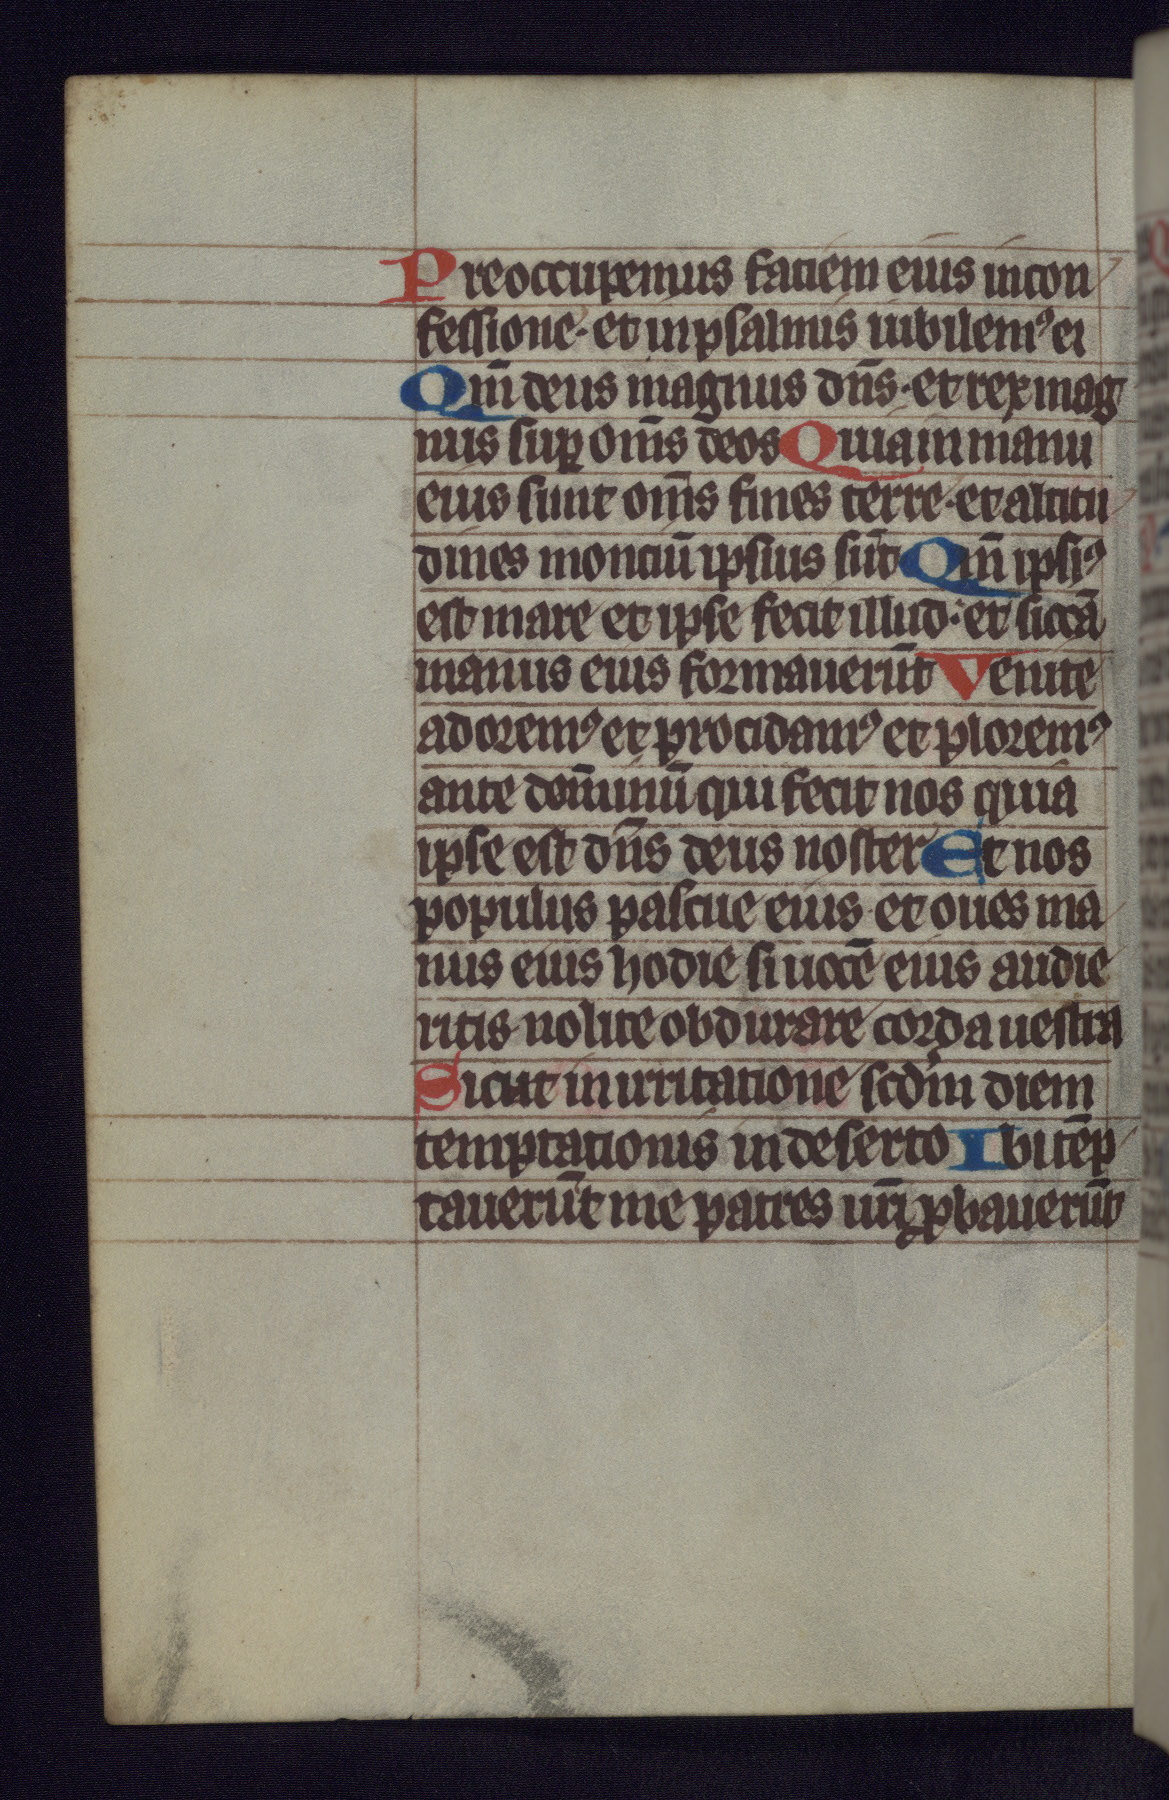 Preoccupemus faciem eius incon
fessione· et in psalmis iubilemꝰ ei
Qm̄ deus magnus dn̄s· et rex mag
nus suꝑ om̄s deos Quia in manu
eius sunt om̄s fines terre· et altitu
dines monciū ipsius sūt Qm̄ ipsiꝰ
est mare et ipse fecit illud· et siccā
manus eius formauerūt Venite
adoremꝰ et procidamꝰ et ploremꝰ
ante dom̄inū qui fecit nos quia
ipse est dn̄s deus noster Et nos
populus pascue eius· et oues ma
nus eius hodie si uocē eius audie
ritis nolite obdurare corda uestra
Sicut in irritatione scdm̄ diem
temptationis in deserto Ibi tēp
tauerūt me patres ur̄i ꝓbauerūt